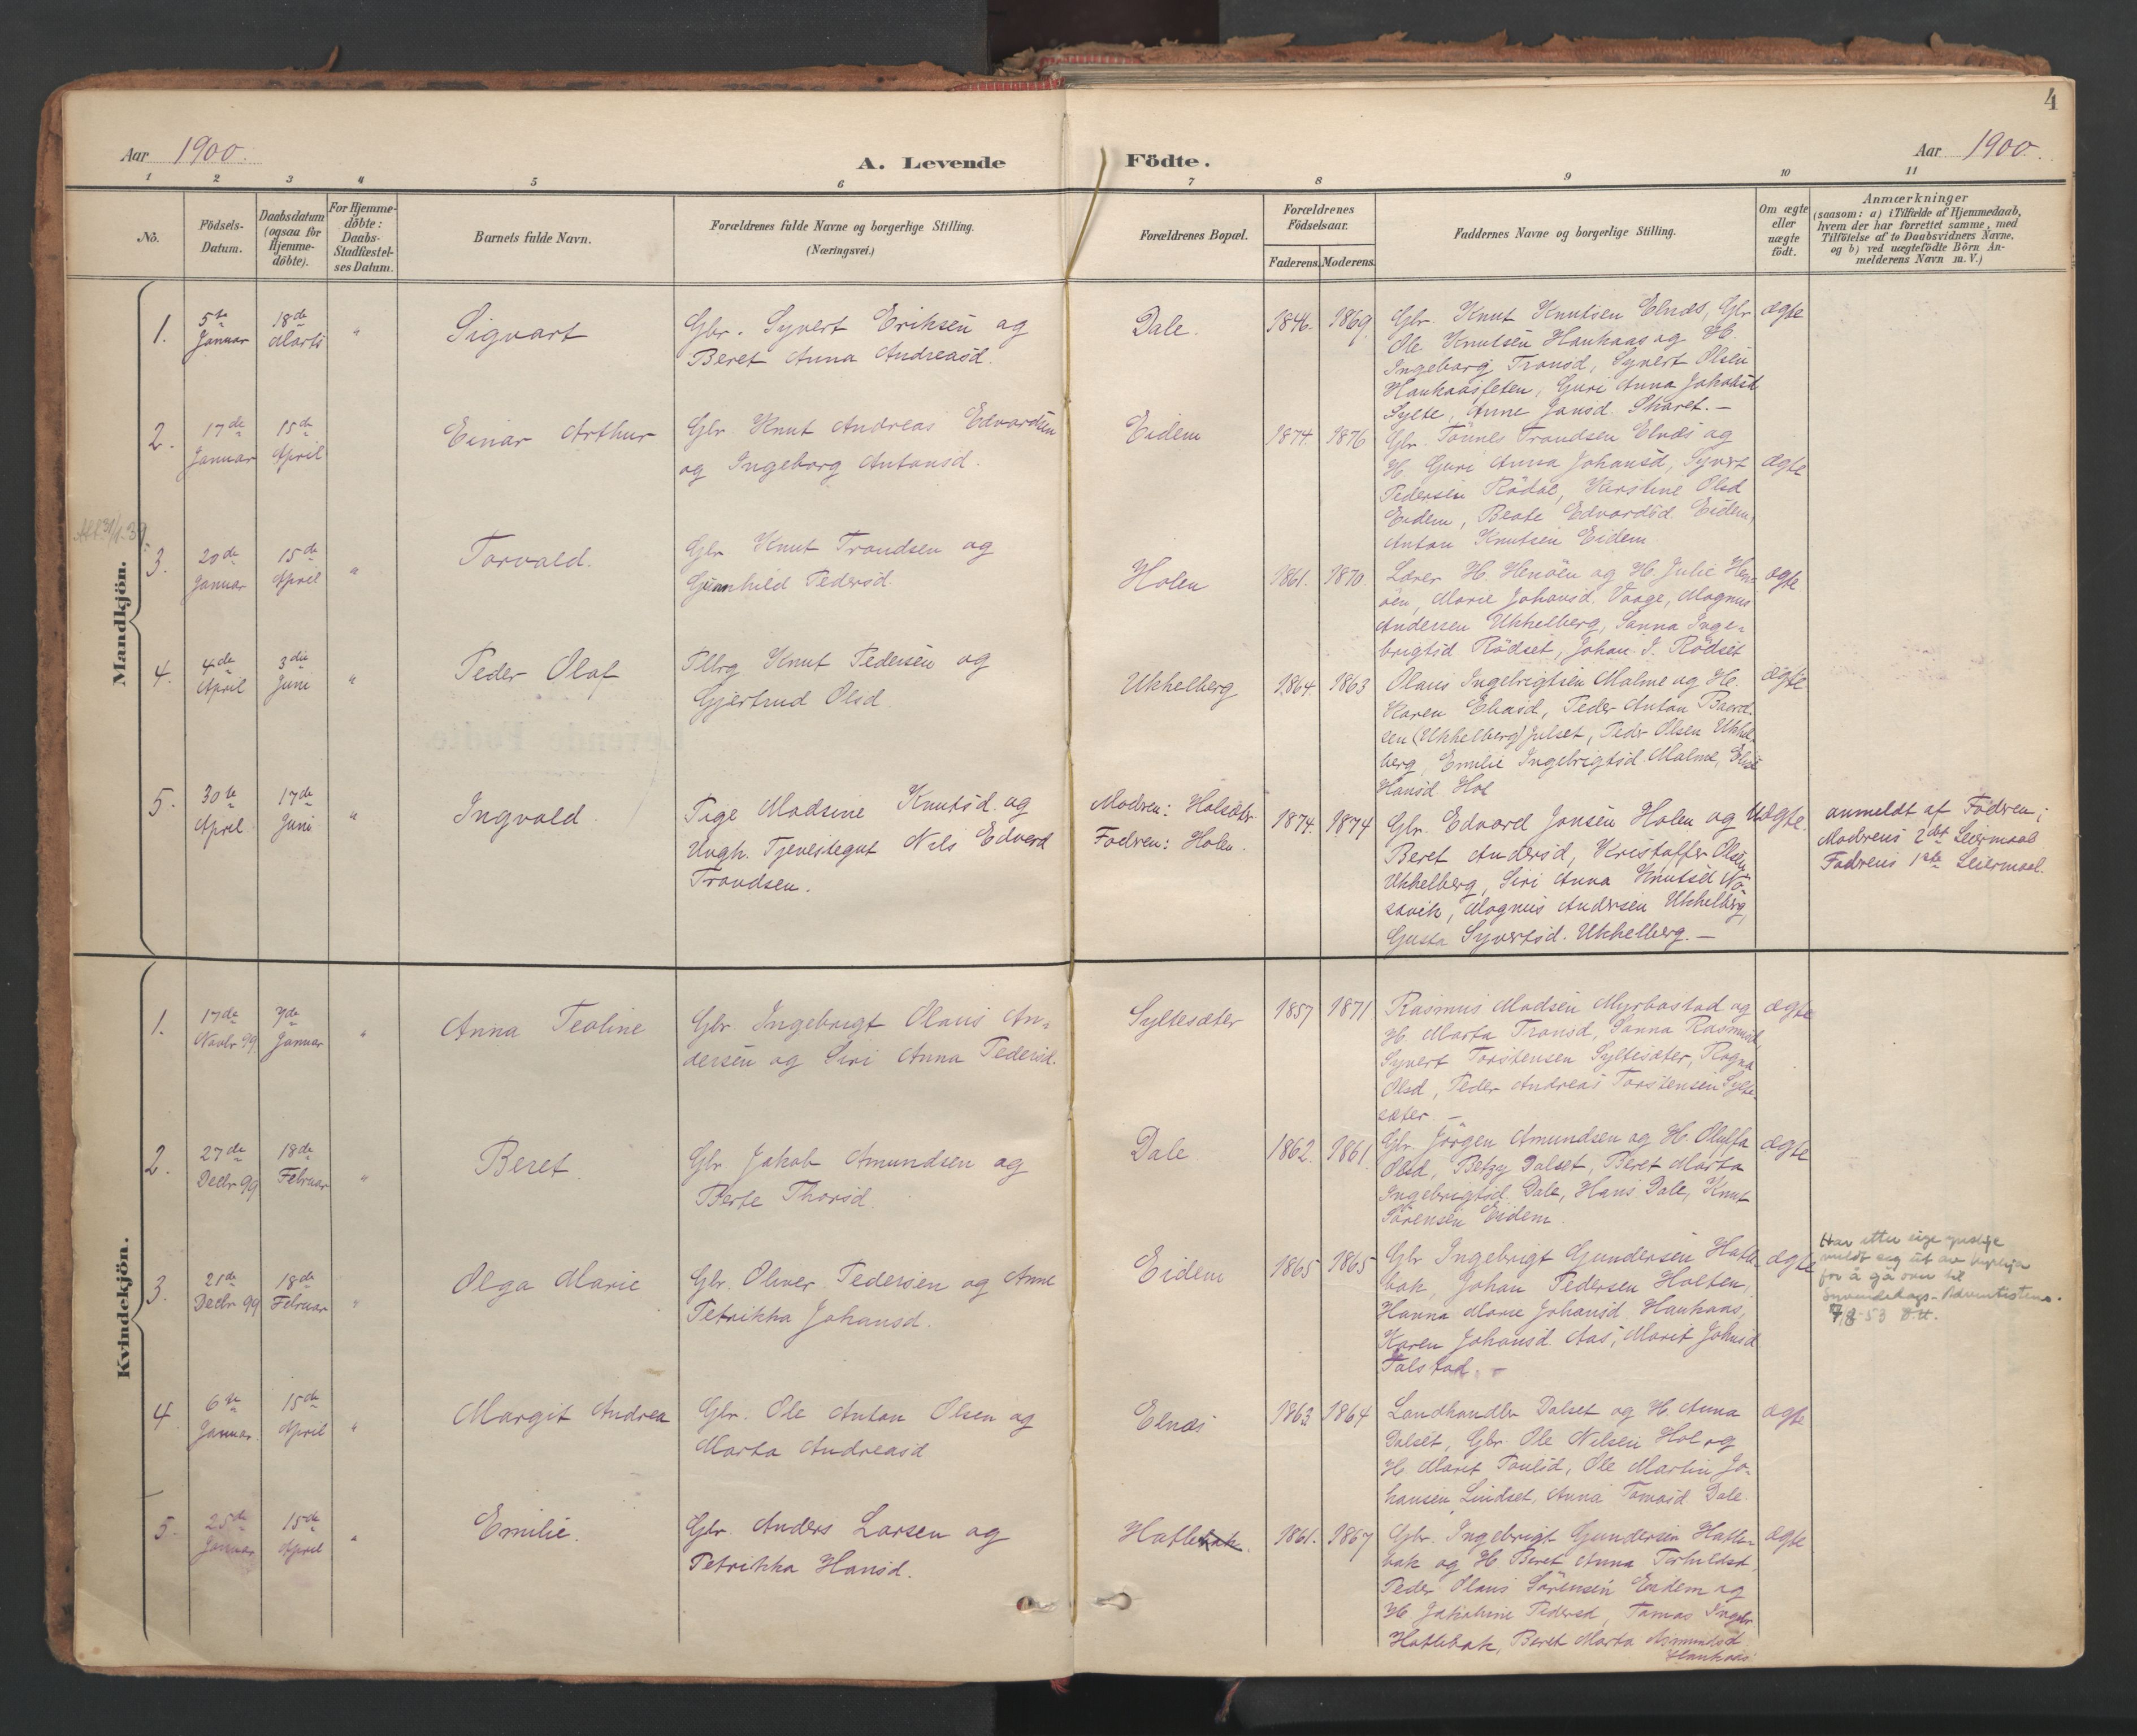 4
Aar 1900.
A. Levende Födte.
Aar 1900.
1 2 3 4 5 6 7 8 9 10 11
No.
Födsels-
Datum.
Daabsdatum
(ogsaa for
Hjemme-
döbte).
For Hjemme-
döbte:
Daabs-
Stadfæstel-
ses Datum.
Barnets fulde Navn.
Forældrenes fulde Navne og borgerlige Stilling.
(Næringsvei.)
Forældrenes Bopæl.
Forældrenes
Födselsaar.
Faderens. Moderens.
Faddernes Navne og borgerlige Stilling.
Om ægte
eller
uægte
födt.
Anmærkninger
(saasom: a) i Tilfælde af Hjemmedaab,
hvem der har forrettet samme, med
Tilföielse af to Daabsvidners Navne.
og b) ved uægtefödte Börn An-
melderens Navn m. V.)
Mandkjön.
1.
5te
Januar
18de
Marts
"
Sigvart
Gbr. Syvert Eriksen og
Beret Anna Andreasd.
Dale.
1846. 1869.
Gbr. Knut Knutsen Elnæs, Gbr
Ole Knutsen Haukaas og H.
Ingeborg Tronsd, Syvert Olsen
Haukaasfeten, Guri Anna Johansd
Sylte, Anne Jansd. Skaret. —
ægte
2.
17de
Januar
15de
April
Einar Arthur
Gbr. Knut Andreas Edvardsen
og Ingeborg Antonsd.
Eidem
1874. 1876
Gbr. Tönnes Trondsen Elnæs og
H. Guri Anna Johansd, Syvert
Pedersen Rödal, Kirstine Olsd
Eidem, Beate Edvardsd. Eidem,
Anton Knutsen Eidem
ægte
3.
20de
Januar
15de
April
"
Torvald.
Gbr. Knut Trondsen og
Gunhild Pedersd.
Holen
1861. 1870.
Lærer H. Henöen og H. Julie Hen-
öen, Marie Johansd. Vaage, Magnus
Andersen Ukkelberg, Sanna Inge-
brigtsd Rödset, Johan J. Rödset
ægte
4.
4de
April
3die
Juni
"
Peder Olaf
Pllrg Knut Pedersen og
Gjertrud Olsd.
Ukkelberg
1864. 1863
Olaus Ingebrigtsen Malme og H.
Karen Eliasd, Peder Anton Baard-
sen (Ukkelberg) Julset, Peder Olsen Ukkel-
berg, Emilie Ingebrigtsd. Malme,
Hansd. Hol
ægte
5.
30te
April
17de
Juni
"
Ingvald.
Pige Madsine Knutsd. og
Ungk. Tjenestegut Nils Edvard
Trondsen.
Modren: Holsæter
Fadren: Holen.
1874. 1874
Gbr. Edvard Jonsen Holen og
Beret Andersd, Kristoffer Olsen
Ukkelberg, Siri Anna Knutsd Nö-
savik, Magnus Andersen Ukkelberg,
Gusta Syvertsd. Ukkelberg. —
Uægte.
anmeldt af Fadren;
Modrens 2det Leiermaal
Fadrens 1ste Leiermaal.
Kvindekjön.
1.
17de
Novbr 99
7de
Januar
"
Anna Teoline
Gbr Ingebrigt Olaus An-
dersen og Siri Anna Pedersd.
Syltesæter
1857 1871
Rasmus Madsen Myrbostad og
H. Marta Tronsd, Sanna Rasmusd,
Syvert Torstensen Syltesæter, Ragna
Olsd, Peder Andreas Torstensen Sylte-
sæter —
ægte
2.
27de
Decbr 99
18de
Februar
"
Beret.
Gbr Jakob Amundsen og
Berte Thorsd.
Dale
1862. 1861.
Gbr. Jörgen Amundsen og H. Oluffa
Olsd, Betzy Dalset, Beret Marta
Ingebrigtsd. Dale, Hans Dale, Knut
Sörensen Eidem.
ægte
3.
21de
Decbr 99
18de
Februar
"
Olga Marie
Gbr. Oliver Pedersen og Anne
Petrikka Johansd.
Eidem
1865 1865
Gbr Ingebrigt Gundersen Hatle-
bak, Johan Pedersen Holten,
Hanna Marie Johansd. Haukaas,
Karen Johansd. Aas, Marit Johnsd
Talstad. —
ægte
Har etter eige ynskje
meldt seg ut av kyrkja
for å gå over til
Syvendedags-Adventistene.
7/8-53
4
6te
Januar.
15de
April
"
Margit Andrea
Gbr. Ole Anton Olsen og
Marta Andreasd
Elnæs
1863 1864
Landhandler Dalset og H. Anna
Dalset, Gbr Ole Nilsen Hol og
H. Marit Paulsd, Ole Martin Jo-
hansen Lindset, Anna Tomasd. Dale.
ægte
5.
25de
Januar
15de
April
"
Emilie.
Gbr. Anders Larsen og
Petrikka Hansd.
Hatlebak.
1861. 1867
Gbr. Ingebrigt Gundersen Hatle-
bak og H Beret Anna
Peder Olaus Sörensen Eidem og
H. Pedersd, Tomas Ingebr
Hatlebak, Beret Marta Amundsd
Haukaas
ægte